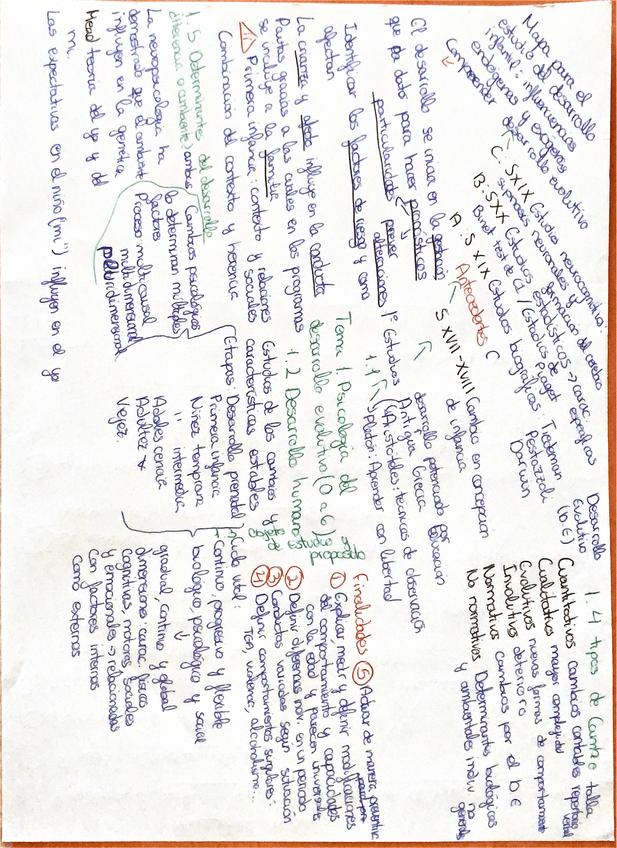 Mapa para el
estudio del desarrollo
infantil: influencias
endógenas y exógenas
Comprender desarrollo evolutivo
C: SXIX Estudios neurocognitivos:
neuronales y formación del cerebro
B: SXX Estudios estadísticos → carac. específicas
Binet test de CI / Estudios Piaget
A: S XIX Estudios biográficos: Tiedeman
Pestazzoli
Darwin
Antecedentes
S XVII-XVIII Cambio en concepción
de infancia
1º Estudios desarrollo potenciado por educación
Antigua Grecia
Aristóteles: técnicas de observación
1.1 Platón: Aprender con libertad
Tema 1. Psicología del
desarrollo evolutivo (0 a 6)
1.2 Desarrollo humano
Estudios de los cambios y
características estables
Etapas: Desarrollo prenatal
Primera infancia
Niñez temprana
" intermedia
Adolescencia
Adultez
Vejez
Ciclo vital:
Continuo, progresivo y flexible
biológico, psicológico y social
gradual, continuo y global
dimensiones: carac. físicas
cognitivas, motores, sociales
y emocionales → relacionadas
con factores internos
como externos
Desarrollo
Evolutivo
(D.E)
1.4 tipos de Cambio
Cuantitativos cambios contables talla
repertorio verbal
Cualitativos mayor complejidad
Evolutivos nuevas formas de comportamiento
Involutivos deterioro
Normativos cambios por el D.E
No normativos Determinantes biológicos
y ambientales indiv. no generales
Finalidades ⑤ Actuar de manera preventiva
① Explicar medir y definir modificaciones
del comportamiento y capacidades
con la edad y parecen universales
② Definir diferencias indv. en un periodo
③ Conductas variadas según situación
④ Definir comportamientos singulares:
TCA, violencia, alcoholismo...
El desarrollo se inicia en la gestación
que da datos para hacer pronósticos
particularidades prever alteraciones
Identificar los factores de riesgo y como
afectan
La crianza y afecto influye en la conducta
Pautas gracias a las cuales en los programas
se incluye a la familia
Primera infancia: contexto y relaciones sociales
Combinación del contexto y herencia
1.5 Determinantes del desarrollo
diferencia o ambiente) ambas
La neuropsicología ha
demostrado que el ambiente
influyen en la genética
Head teoría del yo y del
mi.
Las expectativas en el niño ("mi") influyen en el yo
Cambios psicológicos
lo determinan múltiples
factores
Proceso multicausal
multidimensional
pluridimensional